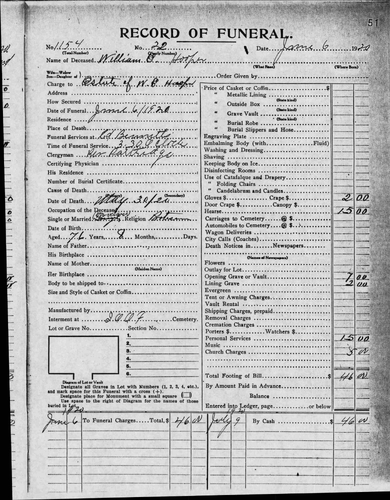 51
RECORD OF FUNERAL.
No. 1154 No. 22 Date June 6 1920
(Total Number) (Yearly Number)
Name of Deceased William C. Hooper
(What Place) (Where Born)
Wife—Widow
Son—Daughter of Order Given by
Charge to Estate of W. C. Hooper
Address
How Secured
Date of Funeral June 6/1920
Residence
Place of Death
Funeral Services at Ed Bennett
Time of Funeral Service 3:30 O'clock
Clergyman Rev.
Certifying Physician
His Residence
Number of Burial Certificate
Cause of Death
Date of Death May 30/20
Occupation of the Deceased
Single or Married Religion
Date of Birth
Aged 76 Years 8 Months, Days.
Name of Father
His Birthplace
Name of Mother
(Maiden Name)
Her Birthplace
Body to be shipped to
Size and Style of Casket or Coffin
Manufactured by
Interment at I.O.O.F. Cemetery.
Lot or Grave No. Section No.
1
2
3
4
5
6
Diagram of Lot or Vault
Designate all Graves in Lot with Numbers (1, 2, 3, 4, etc.), and mark space for this Funeral with a cross (+)
Designate place for Monument with a small square
Use space to the right of Diagram for the names of those buried in Lot.
Price of Casket or Coffin
" Metallic Lining
(State kind)
" Outside Box
(State kind)
" Grave Vault
(State kind)
" Burial Robe
(State kind)
" Burial Slippers and Hose
Engraving Plate
Embalming Body (with Fluid)
Washing and Dressing
Shaving
Keeping Body on Ice
Disinfecting Rooms
Use of Catafalque and Drapery
" Folding Chairs
" Candelabrum and Candles
Gloves $ Crape $ 2 00
Door Crape $ Canopy $
Hearse 15 00
Carriages to Cemetery @ $
Automobiles to Cemetery @ $
Wagon Deliveries
City Calls (Coaches)
Death Notices in Newspapers
Flowers
Outlay for Lot
Opening Grave or Vault 7 00
Lining Grave 2 00
Evergreen
Tent or Awning Charges
Vault Rental
Shipping Charges, prepaid
Removal Charges
Cremation Charges
Porters $ Watchers $
Personal Services 15 00
Music
Church Charges 5 00
Total Footing of Bill $ 46 00
By Amount Paid in Advance
Balance
Entered into Ledger, page or below.
1920
June 6 To Funeral Charges, Total $ 46 00 July 9 By Cash $ 46 00